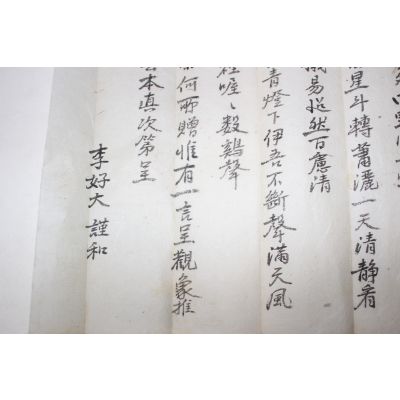 星斗轉蕭灑一天清靜看
易悠然百慮清
青燈下伊吾不斷聲滿天風
喔〻數鷄聲
何所贈惟有一言呈觀象推
本真次第呈
李好大謹和